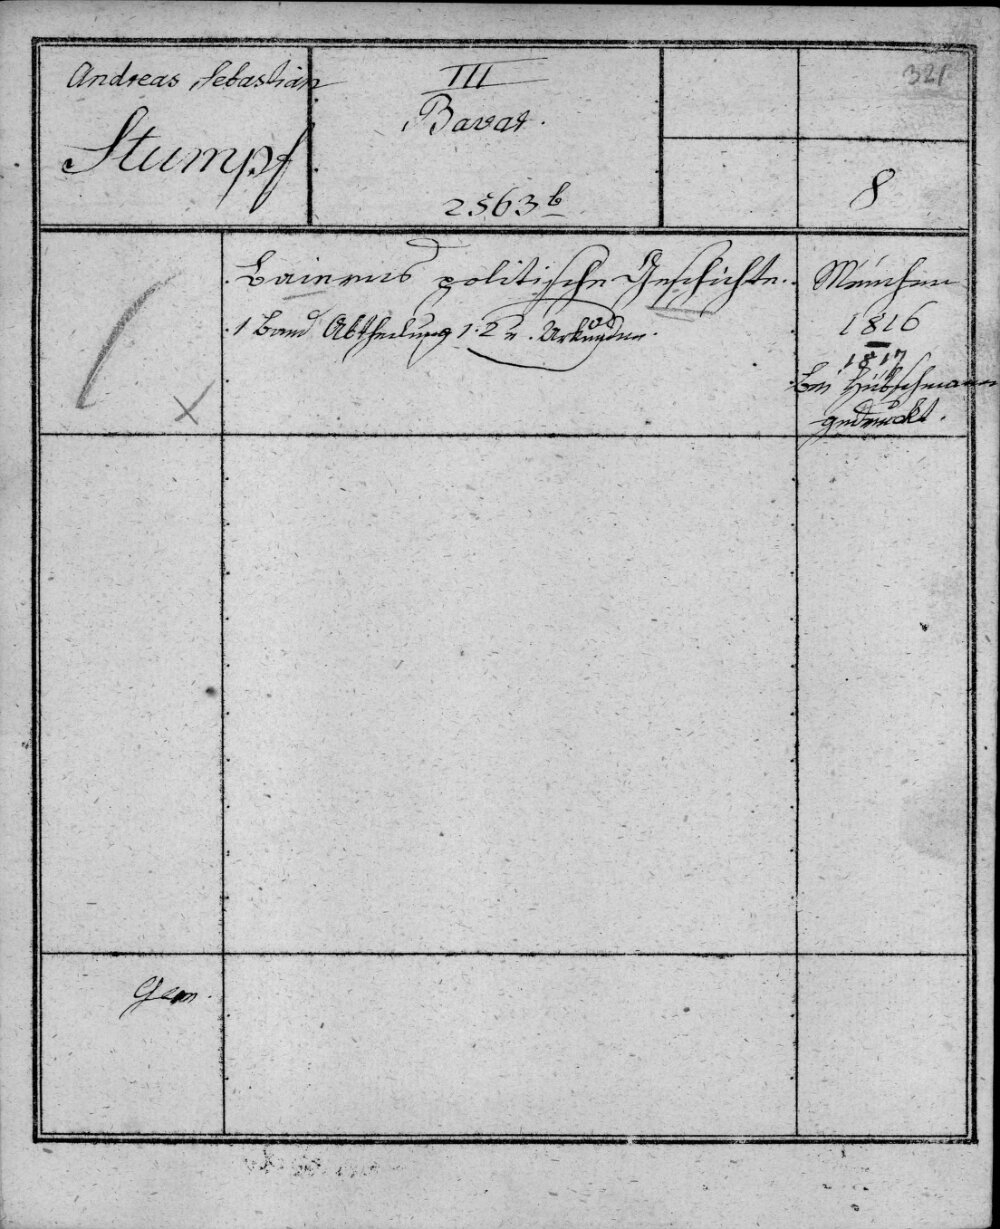 Andreas Sebastian
Stumpf
III
Bavar.
2563 b
321
8
Baierns politische Geschichte.
1 Band Abtheilung 1. 2 u. Urkunden.
München
1816
1817
bei Hübschmann
gedruckt.